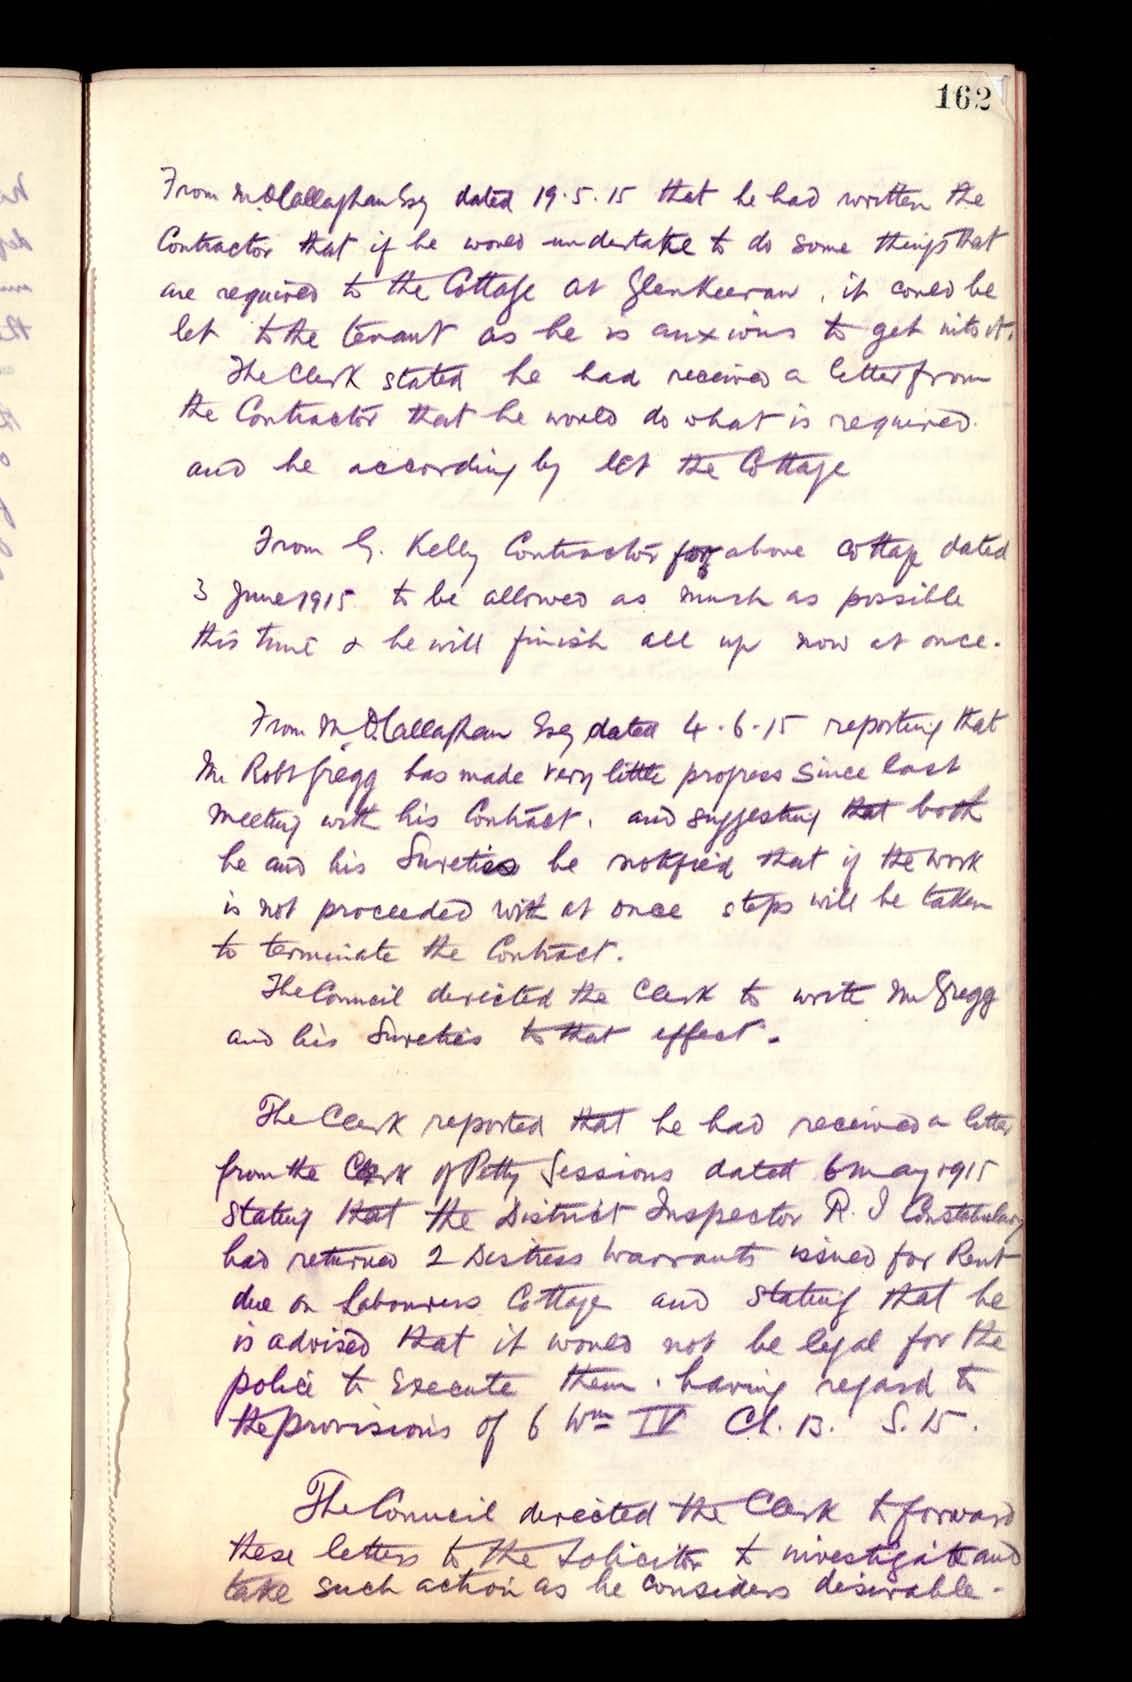 162
From M. O'Callaghan Esq dated 19.5.15 that he had written the
Contractor that if he would undertake to do some things that
are required to the Cottage at Glenkeeran, it could be
let to the tenant as he is anxious to get into it.
The Clerk stated he had received a letter from
the Contractor that he would do what is required.
and he accordingly let the Cottage
From G. Kelly Contractor for above Cottage dated
3 June 1915 to be allowed as much as possible
this time & he will finish all up now at once.
From M. O'Callaghan Esq dated 4.6.15 reporting that
Mr Robt Gregg has made very little progress since last
meeting with his Contract, and suggesting that both
he and his Sureties be notified that if the work
is not proceeded with at once steps will be taken
to terminate the Contract.
The Council directed the Clerk to write Mr Gregg
and his Sureties to that effect.
The Clerk reported that he had received a letter
from the Clerk of Petty Sessions dated 6 May 1915
stating that the District Inspector R. I Constabulary
had returned 2 Distress Warrants issued for Rent
due on Labourers Cottage and stating that he
is advised that it would not be legal for the
police to Execute them, having regard to
the provisions of 6 Wm IV Ch. 13. S. 15.
The Council directed the Clerk to forward
these letters to the Solicitor to investigate and
take such action as he considers desirable.